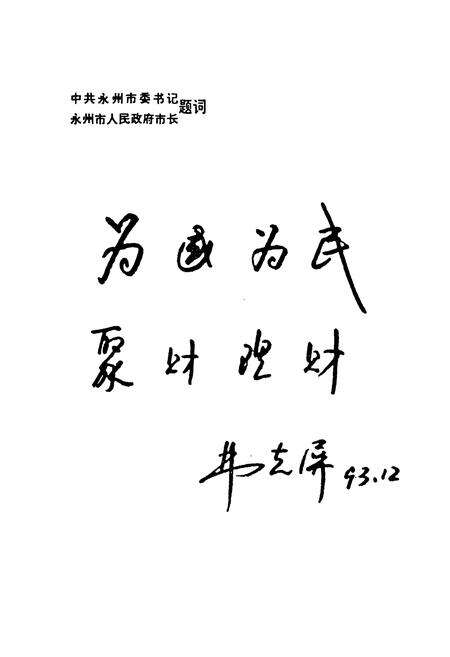 中共永州市委书记
永州市人民政府市长
题词
为国为民
聚财理财
志屏 93.12